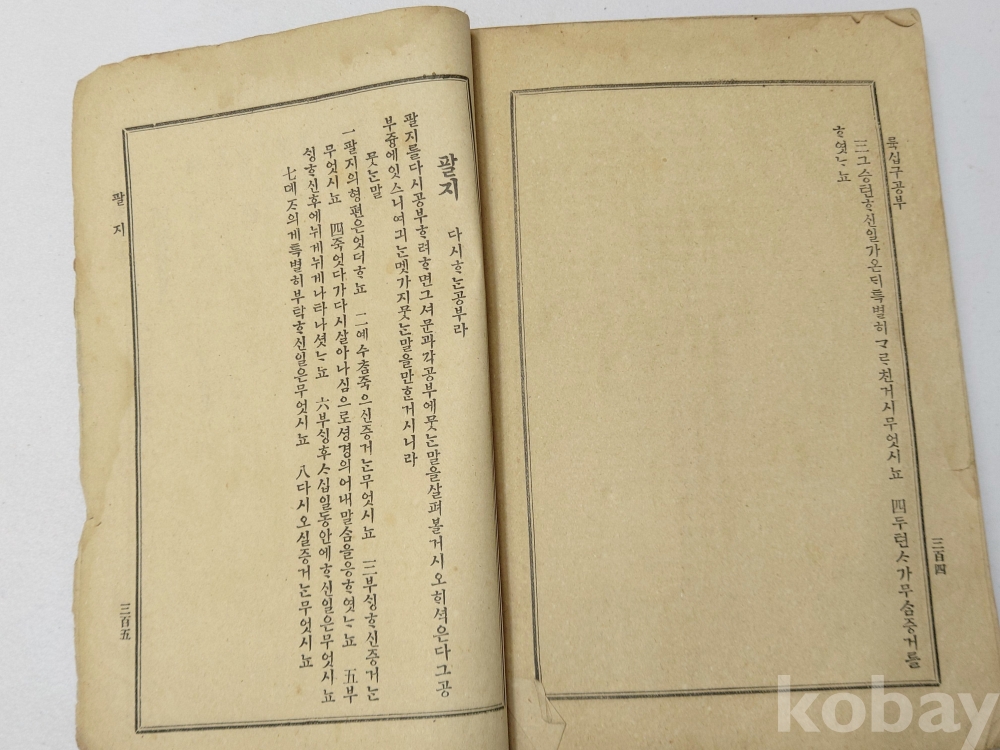 륙십구공부
三 그승텬ᄒᆞ신일가온ᄃᆡ특별히ᄀᆞᄅᆞ친거시무엇시뇨 四 두텬ᄉᆞ가무ᄉᆞᆷ증거를
ᄒᆞ엿ᄂᆞ뇨
三百四
팔지 다시ᄒᆞᄂᆞᆫ공부라
팔지를다시공부ᄒᆞ려ᄒᆞ면그셔문과각공부에뭇ᄂᆞᆫ말을살펴볼거시오ᄒᆡ셕은다그공
부즁에잇스니여긔ᄂᆞᆫ몟가지뭇ᄂᆞᆫ말을만ᄒᆞᆫ거시니라
뭇ᄂᆞᆫ말
一 팔지의형편은엇더ᄒᆞ뇨 二 예수ᄎᆞᆷ죽으신증거ᄂᆞᆫ무엇시뇨 三 부ᄉᆡᆼᄒᆞ신증거ᄂᆞᆫ
무엇시뇨 四 죽엇다가다시살아나심으로셩경의어내말ᄉᆞᆷ을응ᄒᆞ엿ᄂᆞ뇨 五 부
ᄉᆡᆼᄒᆞ신후에뉘게뉘게나타나셧ᄂᆞ뇨 六 부ᄉᆡᆼ후ᄉᆞ십일동안에ᄒᆞ신일은무엇시뇨
七 뎨ᄌᆞ의게특별히부탁ᄒᆞ신일은무엇시뇨 八 다시오실증거ᄂᆞᆫ무엇시뇨
팔지
三百五
kobay